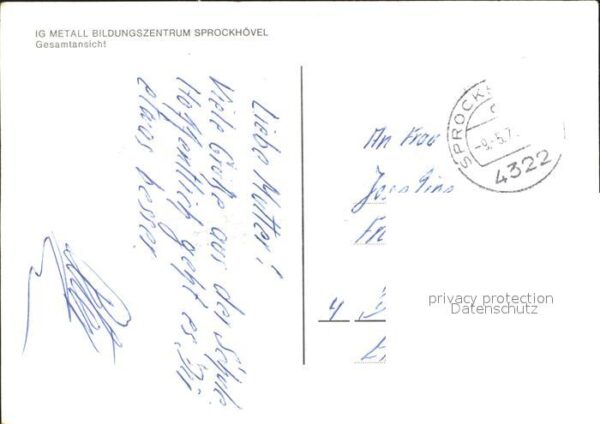 IG METALL BILDUNGSZENTRUM SPROCKHÖVEL
Gesamtansicht
Liebe Mutter!
Viele Grüße aus der Schule
Hoffentlich geht es Dir
etwas besser
An Frau
SPROCKH
-9.-5.7.
4322
4
privacy protection
Datenschutz